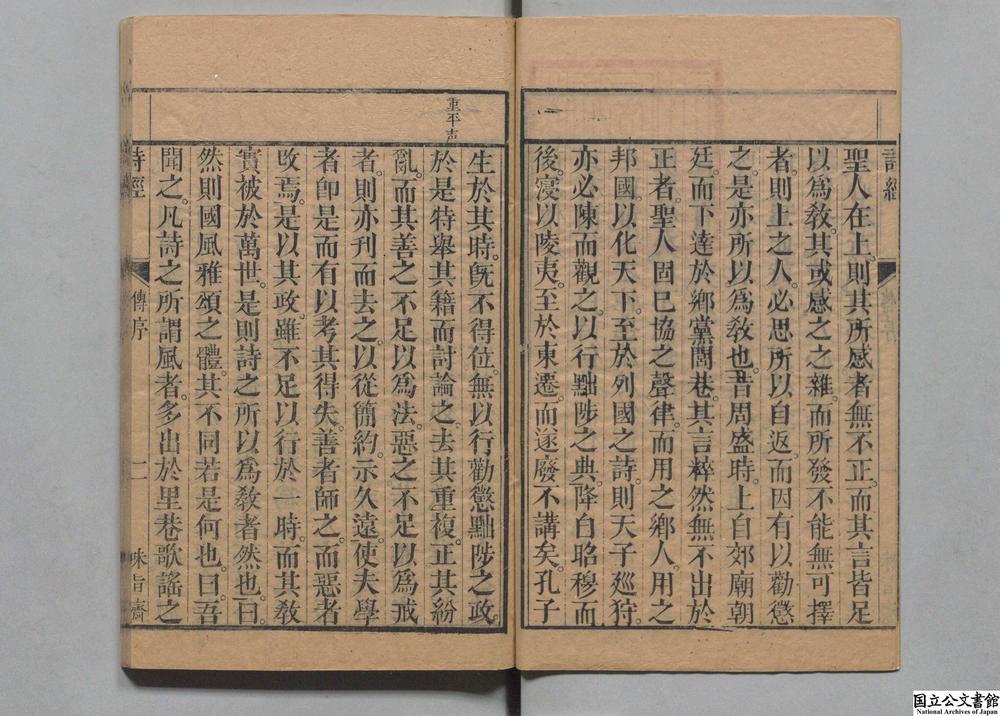 詩經
聖人在上。則其所感者無不正。而其言皆足
以爲敎。其或感之之雜。而所發不能無可擇
者。則上之人必思所以自返。而因有以勸懲
之。是亦所以爲敎也。昔周盛時。上自郊廟朝
廷。而下達於鄉黨閭巷。其言粹然無不出於
正者。聖人固已協之聲律。而用之鄉人。用之
邦國。以化天下。至於列國之詩。則天子廵狩。
亦必陳而觀之。以行黜陟之典。降自昭穆而
後。寖以陵夷。至於東遷。而遂廢不講矣。孔子
重平声
生於其時。旣不得位。無以行勸懲黜陟之政。
於是特舉其籍而討論之。去其重複。正其紛
亂。而其善之不足以爲法。惡之不足以爲戒
者。則亦刊而去之。以從簡約。示久遠。使夫學
者卽是而有以考其得失。善者師之。而惡者
改焉。是以其政。雖不足以行於一時。而其敎
實被於萬世。是則詩之所以爲敎者然也。曰。
然則國風雅頌之體。其不同若是何也。曰。吾
聞之。凡詩之所謂風者。多出於里巷歌謠之
詩經 傳序 二 味旨齋
国立公文書館
National Archives of Japan